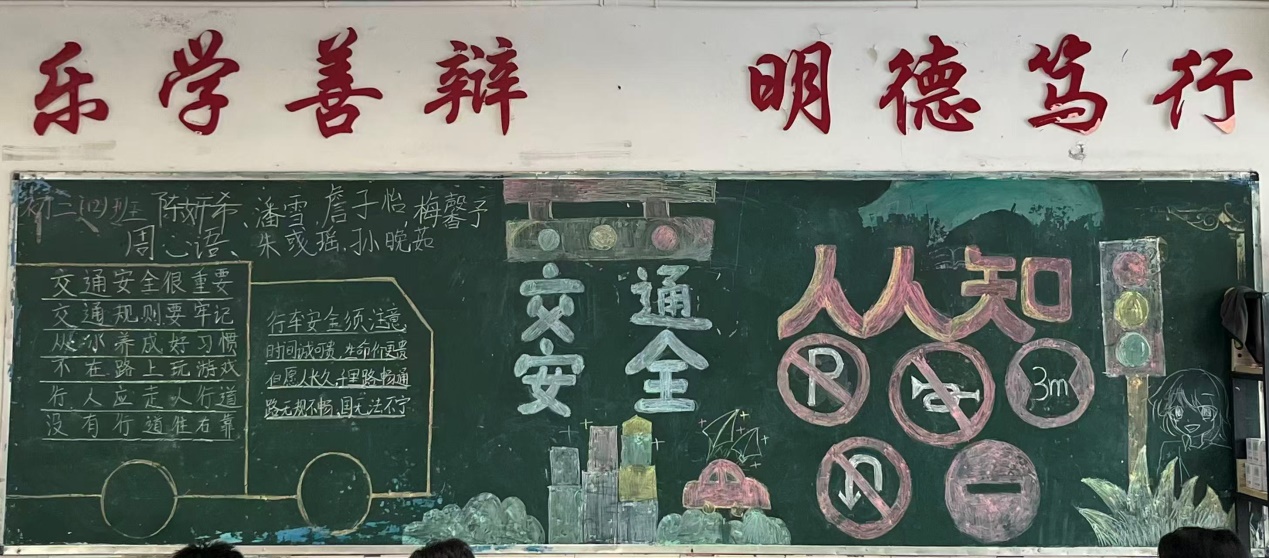 乐学善辩 明德笃行
初三(四)班 陈妍希、潘雪、詹子怡 梅馨予
周心语、朱或瑶、孙晚茹
交通安全很重要
交通规则要牢记
从小养成好习惯
不在路上玩游戏
行人应走人行道
没有行道往右靠
行车安全须注意
时间诚可贵,生命价更贵
但愿人长久,千里路畅通
路无规不畅,国无法不宁
交通
安全
人人知
P
3m